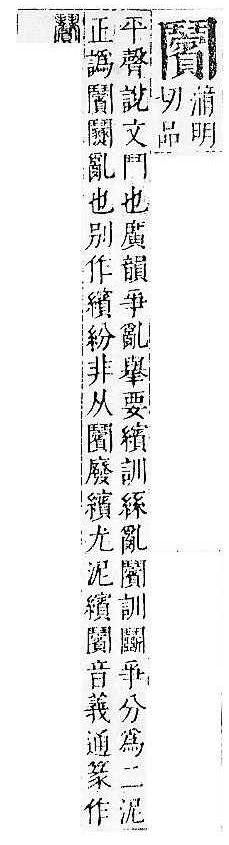 浦明
切品
平聲說文鬥也廣韻爭亂舉要繽訓絲亂訓鬭爭分爲二泥
正譌鬭亂也別作繽紛非从廢繽尤泥繽音義通篆作